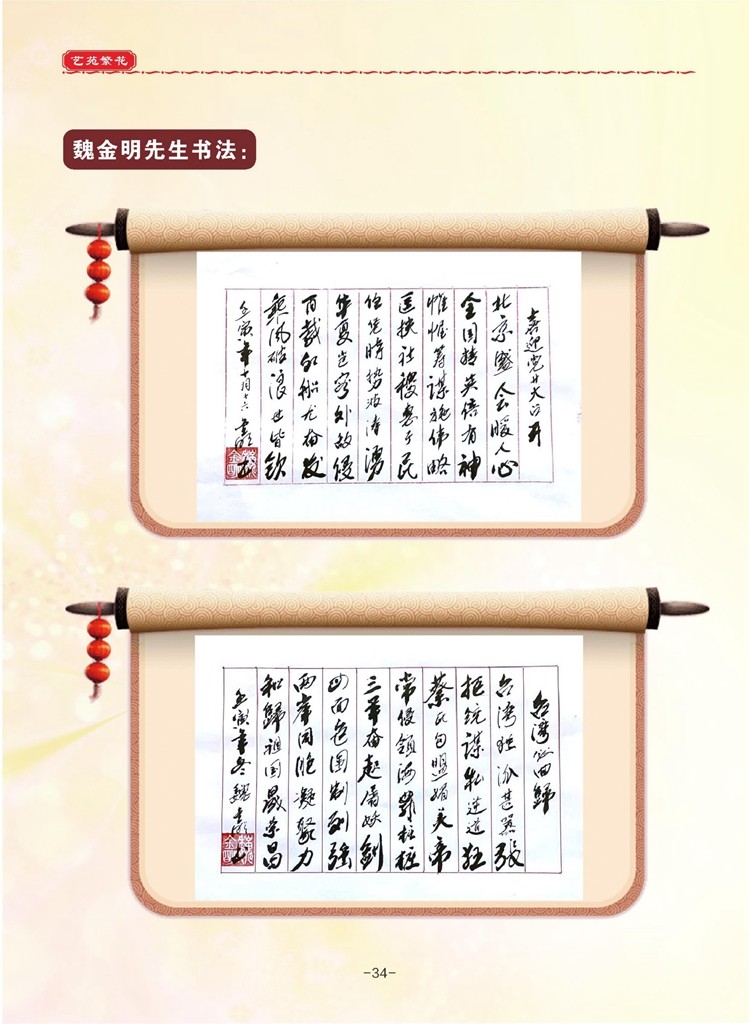 艺苑繁花
魏金明先生书法：
喜迎党廿大召开
北京盛会暖人心
全国精英倍有神
帷幄筹谋施伟略
匡扶社稷惠于民
任凭时势波涛涌
华夏岂容外敌侵
百载红船尤奋发
风破浪世皆钦
壬寅年十月十六
台湾必回歸
台湾独派甚嚣张
拒统谋私逆道狂
蔡氏勾盟媚美帝
常侵领海罪桩桩
三军奋起屠妖剑
四面包围制列强
两岸同胞凝聚力
和歸祖国晟荣昌
壬寅年冬魏
-34-